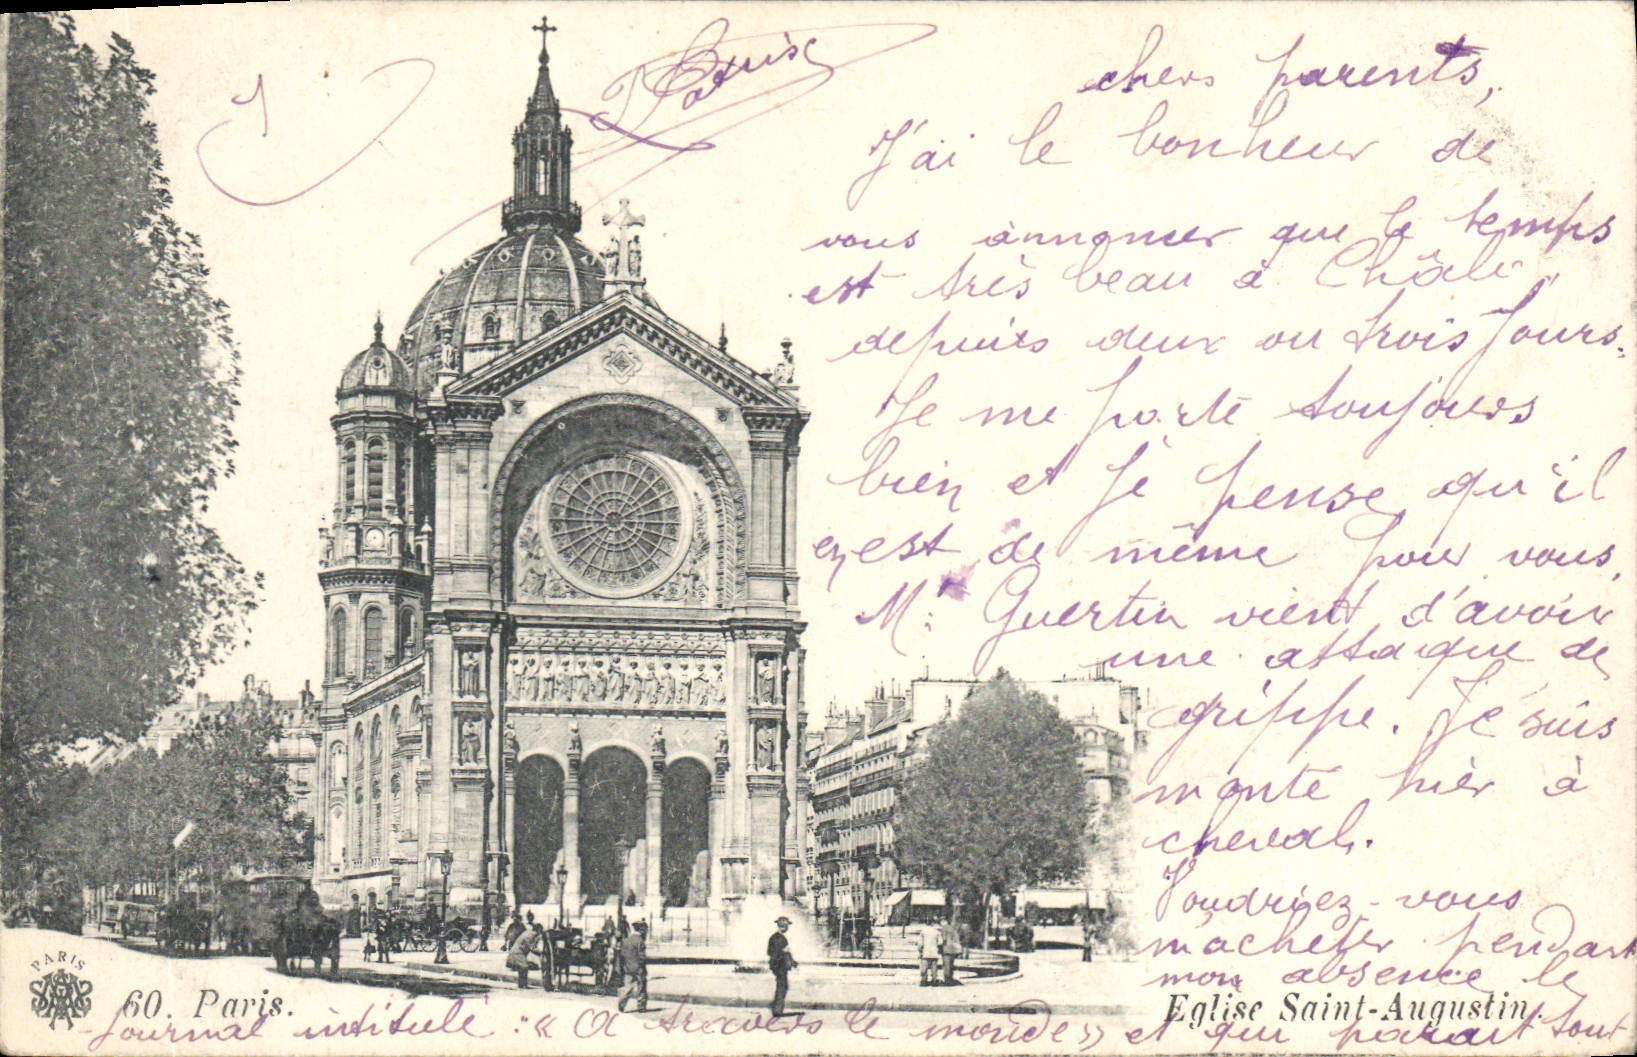 chers parents,
J'ai le bonheur de
vous annoncer que le temps
est très beau à
depuis deux ou trois jours.
Je me porte toujours
bien et je pense qu'il
en est de même pour vous.
Mr Guertin vient d'avoir
une attaque de
grippe. Je suis
monté hier à
cheval.
Voudriez-vous
m'acheter pendant
mon absence le
journal intitulé : « A travers le monde » et qui parait tout
PARIS
60. Paris.
Eglise Saint-Augustin.